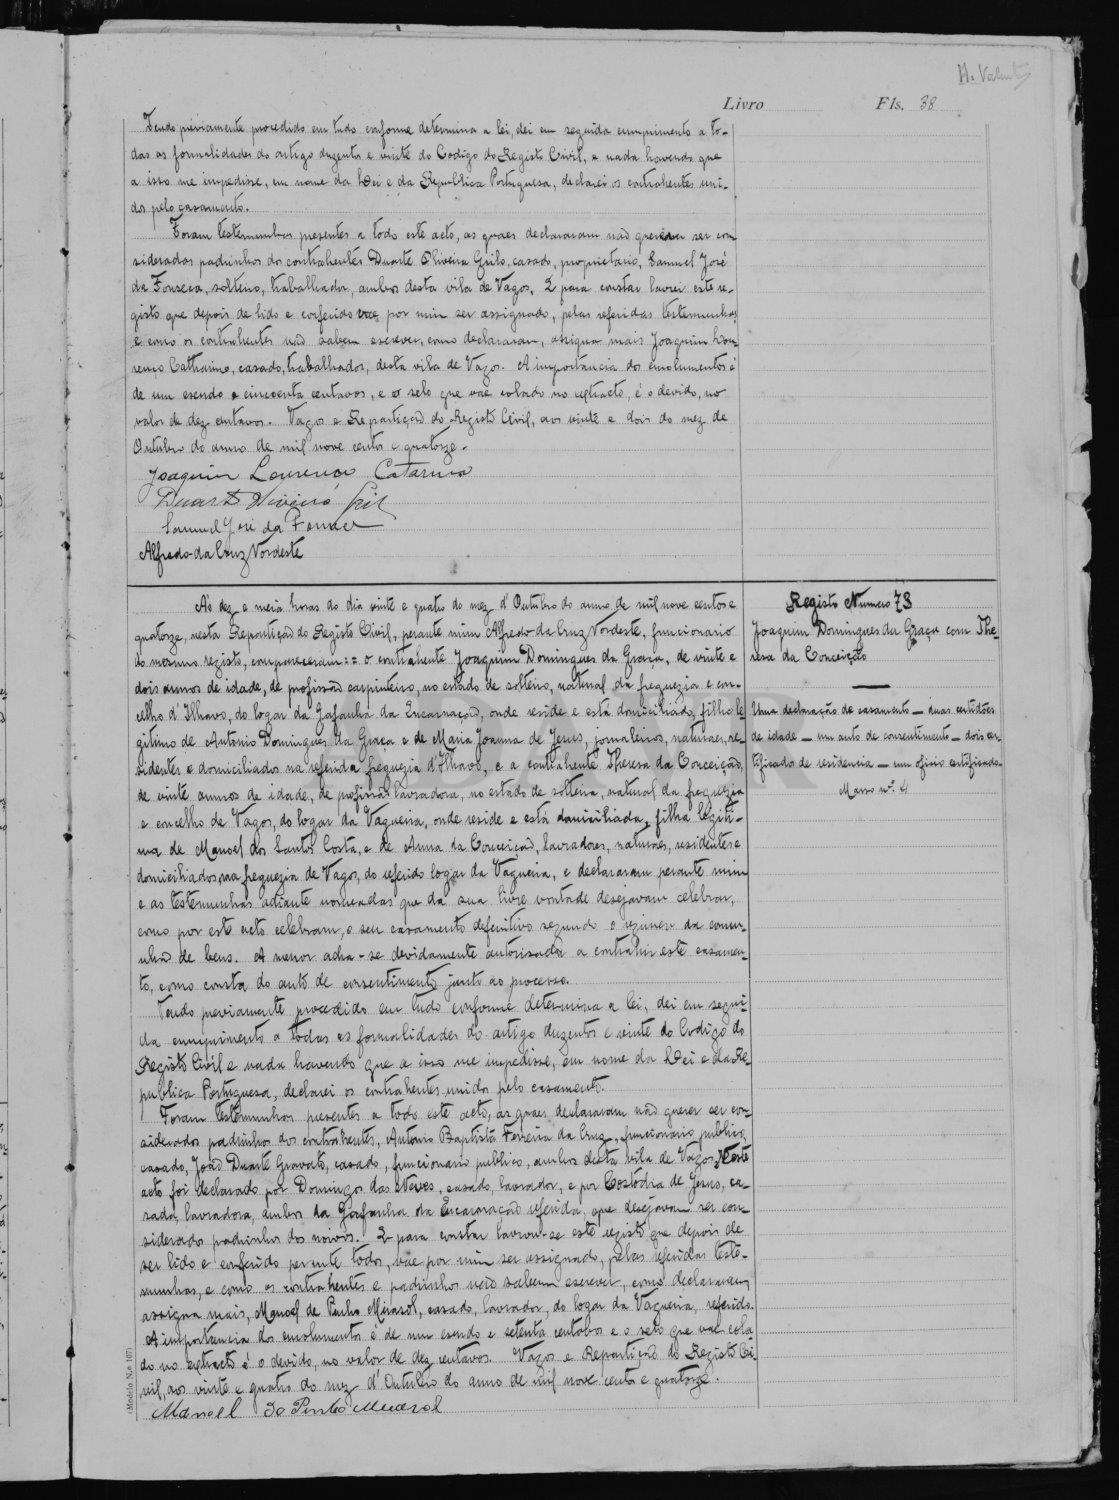 H. Valente
Livro Fls. 38
Tendo previamente procedido em tudo conforme determina a lei, dei em seguida cumprimento a to-
das as formalidades do artigo duzentos e vinte do Codigo do Registo Civil, e nada havendo que
a isso me impedisse, em nome da Lei e da Republica Portuguesa, declarei os contrahentes uni-
dos pelo casamento.
Foram testemunhas presentes a todo este acto, as quaes declararam não quererem ser con
siderados padrinhos dos contrahentes Duarte Oliveira Grilo, casado, proprietario, Samuel José
da Fonseca, solteiro, trabalhador, ambos desta vila de Vagos. E para constar lavrei este re-
gisto que depois de lido e conferido vae por mim ser assignado, pelas referidas testemunhas
e como os contrahentes não sabem escrever, como declararam, assigna mais Joaquim Lou
renço Catharino, casado, trabalhador, desta vila de Vagos. A importancia dos emolumentos é
de um escudo e cincoenta centavos, e o selo que vae colado no extracto, é o devido, no
valor de dez centavos. Vagos e Repartição do Registo Civil, aos vinte e dois do mez de
Outubro do anno de mil nove centos e quatorze.
Joaquim Lourenço Catarino
Duarte Oliveira Gril
Samuel José da Fonseca
Alfredo da Cruz Nordeste
Ás dez e meia horas do dia vinte e quatro do mez d'Outubro do anno de mil nove centos e
quatorze, nesta Repartição do Registo Civil, perante mim Alfredo da Cruz Nordeste, funcionario
do mesmo registo, compareceram:= o contrahente Joaquim Domingues da Graça, de vinte e
dois annos de idade, de profissão carpinteiro, no estado de solteiro, natural da freguezia e con-
celho d'Ilhavo, do logar da Gafanha da Encarnação, onde reside e está domiciliado, filho le
gitimo de Antonio Domingues da Graça e de Maria Joanna de Jesus, jornaleiros, naturaes, re-
sidentes e domiciliados na referida freguezia d'Ilhavo, e a contrahente Theresa da Conceição,
de vinte annos de idade, de profissão lavradora, no estado de solteira, natural da freguezia
e concelho de Vagos, do logar da Vagueira, onde reside e está domiciliada, filha legiti-
ma de Manoel dos Santos Costa, e de Anna da Conceição, lavradores, naturaes, residentes e
domiciliados, na freguezia de Vagos, do referido logar da Vagueira, e declararam perante mim
e as testemunhas adiante nomeadas que da sua livre vontade desejavam celebrar,
como por este acto celebram, o seu casamento definitivo segundo o regimen da comu-
nhão de bens. A menor acha-se devidamente autorisada a contrahir este casamen-
to, como consta do auto de consentimento junto ao processo.
Tendo previamente procedido em tudo conforme determina a lei, dei em segui-
da cumprimento a todas as formalidades do artigo duzentos e vinte do Codigo do
Registo Civil e nada havendo que a isso me impedisse, em nome da Lei e da Re-
publica Portuguesa, declarei os contrahentes unidos pelo casamento.
Foram testemunhas presentes a todo este acto, as quaes declararam não querer ser con-
siderados padrinhos dos contrahentes, Antonio Baptista Ferreira da Cruz, funcionario publico,
casado, João Duarte Gravato, casado, funcionario publico, ambos desta vila de Vagos. Neste
acto foi declarado por Domingos das Neves, casado, lavrador, e por Costodia de Jesus, ca-
sada, lavradora, ambos da Gafanha da Encarnação referida, que desejavam ser con-
siderados padrinhos dos noivos. E para constar lavrou-se este registo que depois de
ser lido e conferido perante todos, vae por mim ser assignado, pelas referidas teste-
munhas, e como os contrahentes e padrinhos não sabem escrever, como declararam,
assigna mais, Manoel de Pinho Mirasol, casado, lavrador, do logar da Vagueira, referido.
A importancia dos emolumentos é de um escudo e setenta centabos e o selo que vae cola
do no extracto é o devido, no valor de dez centavos. Vagos e Repartição do Registo Ci
vil, aos vinte e quatro do mez d'Outubro do anno de mil nove centos e quatorze.
Manoel do Pinho Mirasol
Registo Numero 73
Joaquim Domingues da Graça com The-
resa da Conceição
Uma declaração de casamento — duas certidões
de idade — um auto de consentimento — dois cer-
tificados de residencia — um oficio certificado.
Masso nº. 4
(Modelo N.º 107)